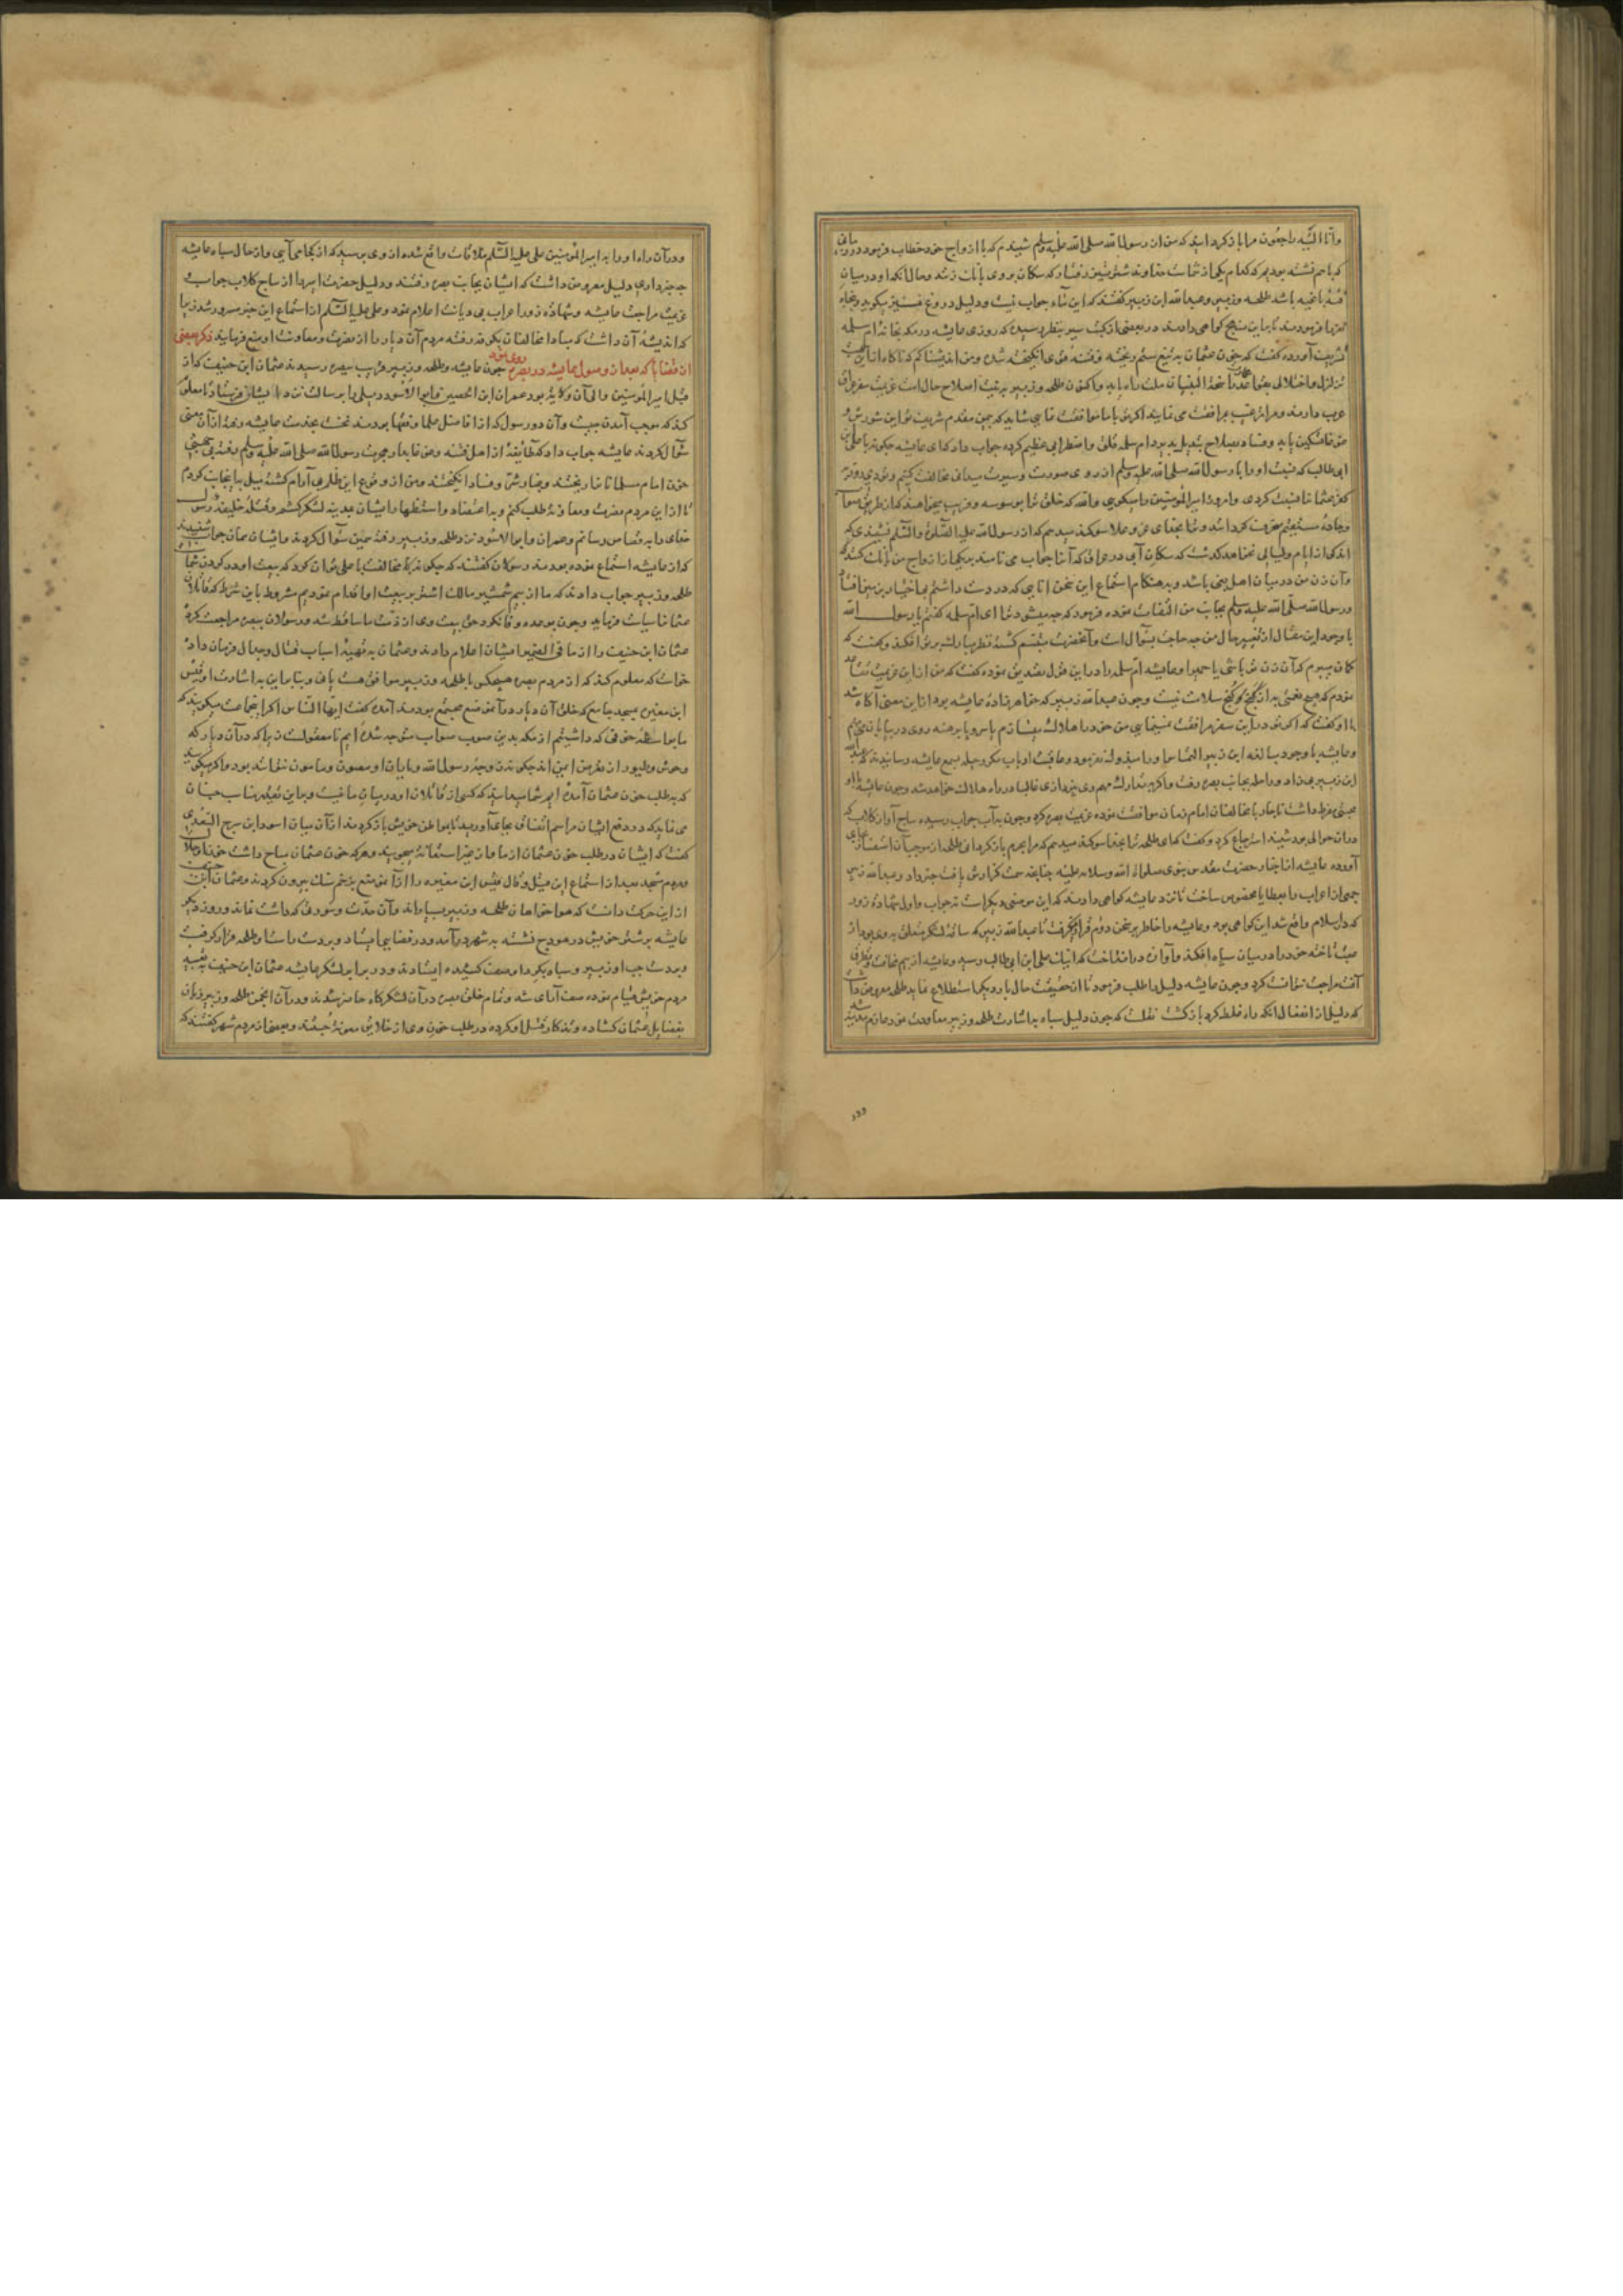 وانا الیه راجعون مرا باز کردانید که من از رسول الله صلی الله علیه وسلم شنیدم که با ازواج خود خطاب فرمود
که با هم نشسته بودیم که کدام یکی از شماست خداوند شتر که سکان بروی بانک زنند و حال آنکه او در میان
فئه باغیه باشد طلحه و زبیر و عبدالله ابن زبیر کفتند که این نه آب جواب نیست و دلیل دروغ میکوید و پنجاه
کواهی دادند در بعضی از کتب سیر بنظر رسیده که روزی عایشه در مکه بخانه ام سلمه
تشریف آورده کفت که خون عثمان به تیغ ستم ریخته و فتنه قوی انکیخته شده
اکنون طلحه و زبیر به نیت اصلاح حال است عزیمت سفر
عرب دارند و مرا ترغیب مرافقت می نمایند اکر تو با ما موافقت نمایی شاید که بیمن مقدم شریف تو این شورش
تسکین یابد و فساد بصلاح تبدیل پذیرد ام سلمه قلق و اضطرابی عظیم کرده جواب داد که ای عایشه چکونه با علی
ابی طالب که نسبت او را با رسول الله صلی الله علیه وسلم از روی صورت و سیرت میدانی مخالفت کنیم
عثمان نسبت کردی و امروز امیر المؤمنین را میکویی والله که خلق ترا بوسوسه و فریب میخواهند که از طریق
و جاده مستقیم منحرف کردانند و ترا بخدای عز و علا سوکند میدهم که از رسول الله علیه الصلوة والسلام نشنیدی که
اندکی از ایام و لیالی نخواهد کذشت که سکان آبی در عراق که آنرا حواب می نامند بر یکی از ازواج من بانک کنند
و آن زن من در میان اهل بغی باشد و به هنکام استماع این سخن انایی که در دست داشتم بی اختیار من بیفتاد
و رسول الله صلی الله علیه وسلم بجانب من التفات نموده فرمود که چه میشود ترا ای ام سلمه کفتم یا رسول الله
با وجود این مقال از تغییر حال من چه حاجت بسوال است و آنحضرت متبسم کشته نظر مبارک بر تو افکند و کفت که
کمان میبرم که آن زن تو باشی یا حمیرا و عایشه ام سلمه را در این قول تصدیق نموده کفت که من از این عزیمت تقاعد
نمودم که هیچ نعمتی به از کنج سلامت نیست و چون عبدالله زبیر که خواهرزاده عایشه بود از این معنی آکاه شد
با او کفت که اکر تو در این سفر مرافقت نمینمایی من خود را هلاک میسازم یا سر و پا برهنه روی در بیابان می نهم
و عایشه با وجود مبالغه ابن زبیر التماس او را مبذول نفرمود
ابن زبیر بجانب بصره رفت و اکر به تدارک مهم وی نپردازی غالبا در راه هلاک خواهد شد و چون عایشه با او
محبتی مفرط داشت ناچار با مخالفان امام زمان موافقت نموده عزیمت بصره کرد و چون به آب حواب رسیده نباح آواز کلاب که
در آن حوالی بود شنید استرجاع کرد و کفت که ای طلحه ترا بخدا سوکند میدهم که مرا بحرم باز کردانی
آورده عایشه از اخبار حضرت مقدس نبوی صلوات الله وسلامه علیه چنانچه سمت کزارش یافت خبر داد و عبدالله زبیر
جمعی از اعراب را بعطایا مخصوص ساخت تا نزد عایشه کواهی دادند که این موضعی دیکر است نه حواب و اول شهاده زور
که در اسلام واقع شد این کواهی بود و عایشه را خاطر بر سخن دروغ قرار نکرفت تا عبدالله زبیر که ساقه لشکر متعلق به وی بود از
عقب تاخته خود را در میان سپاه افکند و آوازه در انداخت که اینک علی ابن ابی طالب رسید و عایشه از بیم
مراجعت نتوانست کرد و چون عایشه دلیل را طلب فرمود تا از حقیقت حال بار دیکر استطلاع نماید طلحه معروض داشت
که دلیل از انفعال آنکه راه غلط کرد باز کشت نقلست که چون دلیل سپاه به اشارت طلحه و زبیر معاودت نمود عازم مدینه
و در آن راه او را به امیر المؤمنین علی علیه السلام ملاقات واقع شده از وی پرسید که از کجا می آیی و از حال سپاه عایشه
چه خبر داری دلیل معروض داشت که ایشان بجانب بصره رفتند و دلیل حضرت امیر را از نباح کلاب حواب
عزیمت مراجعت عایشه و شهاده زور اعراب بی دیانت اعلام نمود و علی علیه السلام از استماع این خبر مسرور شد زیرا
که اندیشه آن داشت که مبادا مخالفان بکوفه رفته مردم آن دیار را از نصرت و معاونت او منع فرمایند ذکر بعضی
از قضایا که بعد از وصول عایشه در بصره روی نمود چون عایشه و طلحه و زبیر قریب ببصره رسیدند عثمان ابن حنیف که از
قبل امیر المؤمنین والی آن ولایت بود عمران ابن الحصین و ابو الاسود دیلی را برسالت نزد ایشان فرستاد تا معلوم
کند که موجب آمدن چیست و آن دو رسول که از افاضل علما و فقها بودند نخست بخدمت عایشه رفته از آن معنی
سؤال کردند عایشه جواب داد که طایفه از اهل فتنه و غوغا بدار هجرت رسول الله صلی الله علیه وسلم رفته بی جهتی
خون امام مسلمانان ریختند و غبار شر و فساد انکیختند
تا از این مردم نصرت و معاونه طلب کنم و به اعتضاد و استظهار ایشان بمدینه لشکر کشم و قتله خلیفه رسول
خدای را به قصاص رسانم و عمران و ابو الاسود نزد طلحه و زبیر رفته همین سؤال کردند و ایشان همان جواب شنیدند
که از عایشه استماع نموده بودند رسولان کفتند که چکونه مخالفت با علی توان کرد که بیعت او در کردن شما
طلحه و زبیر جواب دادند که ما از بیم شمشیر مالک اشتر بر بیعت او اقدام نمودیم مشروط باین شرط که قاتلان
عثمان را سیاست فرماید و چون بوعده وفا نکرد حق بیعت وی از ذمت ما ساقط شد و رسولان ببصره مراجعت کرده
عثمان ابن حنیف را از ما فی الضمیر ایشان اعلام دادند و عثمان به تهیه اسباب قتال و جدال فرمان داد
خواست که معلوم کند که از مردم بصره هیچکس با طلحه و زبیر موافق هست یا نی و بنابراین به اشارت او قیس
ابن مغیره بمسجد جامع که خلق آن دیار در آن موضع مجتمع بودند آمده کفت ایها الناس اکر این جماعت میکویند که
ما بواسطه خوفی که داشتیم از مکه بدین صوب صواب متوجه شده ایم نامعقولست زیرا که در آن دیار که
وحوش و طیور از تعرض ایمن اند چکونه زوجه رسول الله و یاران او مصون و مامون نتوانند بود و اکر میکویند
که به طلب خون عثمان آمده ایم شما میدانید که کسی از قاتلان او در میان ما نیست و بنابراین تقدیر مناسب چنان
می نماید که در دفع ایشان مراسم اتفاق بجای آورید تا بمواطن خویش باز کردند از آن میان اسود ابن سریع السعدی
کفت که ایشان در طلب خون عثمان از ما و از غیر ما استعانه میجویند
مردم مسجد بعد از استماع این قیل و قال قیس ابن مغیره را از آن موضع بزخم سنک بیرون کردند و عثمان ابن
از این حرکت دانست که هواخواهان طلحه و زبیر بسیارند و آن حدت و سورتی که داشت نماند و روز دیکر
عایشه بر شتر خویش در هودج نشسته به شهر در آمد و در فضایی ایستاد و بر دست راست او طلحه قرار کرفت
و بر دست چپ او زبیر و سپاه بکرد او صف کشیده ایستادند و در برابر لشکر عایشه عثمان ابن حنیف به تعبیه
مردم خویش قیام نموده صف آرای شد و تمام خلق بصره در آن لشکرکاه حاضر شدند و در آن انجمن طلحه و زبیر زبان
بفضایل عثمان کشاده و تذکار قتل او کرده در طلب خون وی از خلایق معونه جستند و بعضی از مردم شهر کفتند که